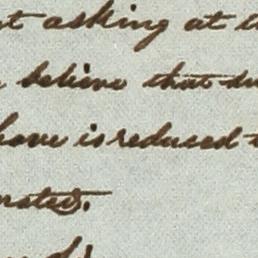 t asking at t
believe that du
have is reduced t